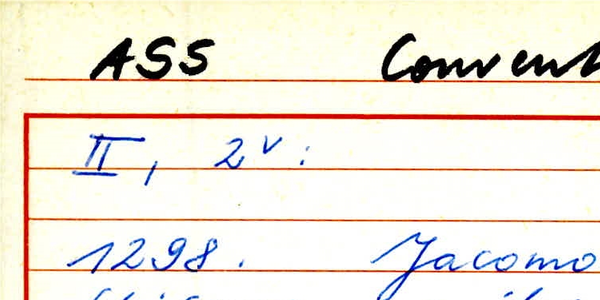 ASS Convent
II, 2v:
1298. Jacomo